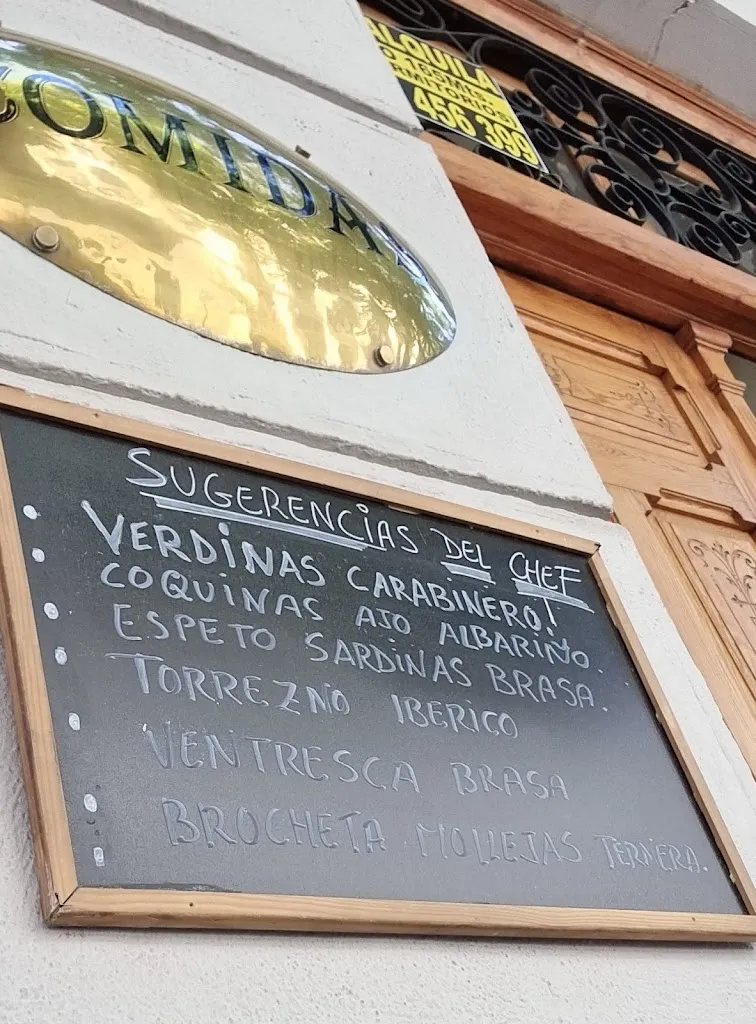 COMIDAS
ALQUILA
165M2
DORMITORIOS
456 399
SUGERENCIAS DEL CHEF
VERDINAS CARABINERO!
COQUINAS AJO ALBARIÑO.
ESPETO SARDINAS BRASA.
TORREZNO IBERICO
VENTRESCA BRASA
BROCHETA MOLLEJAS TERNERA.